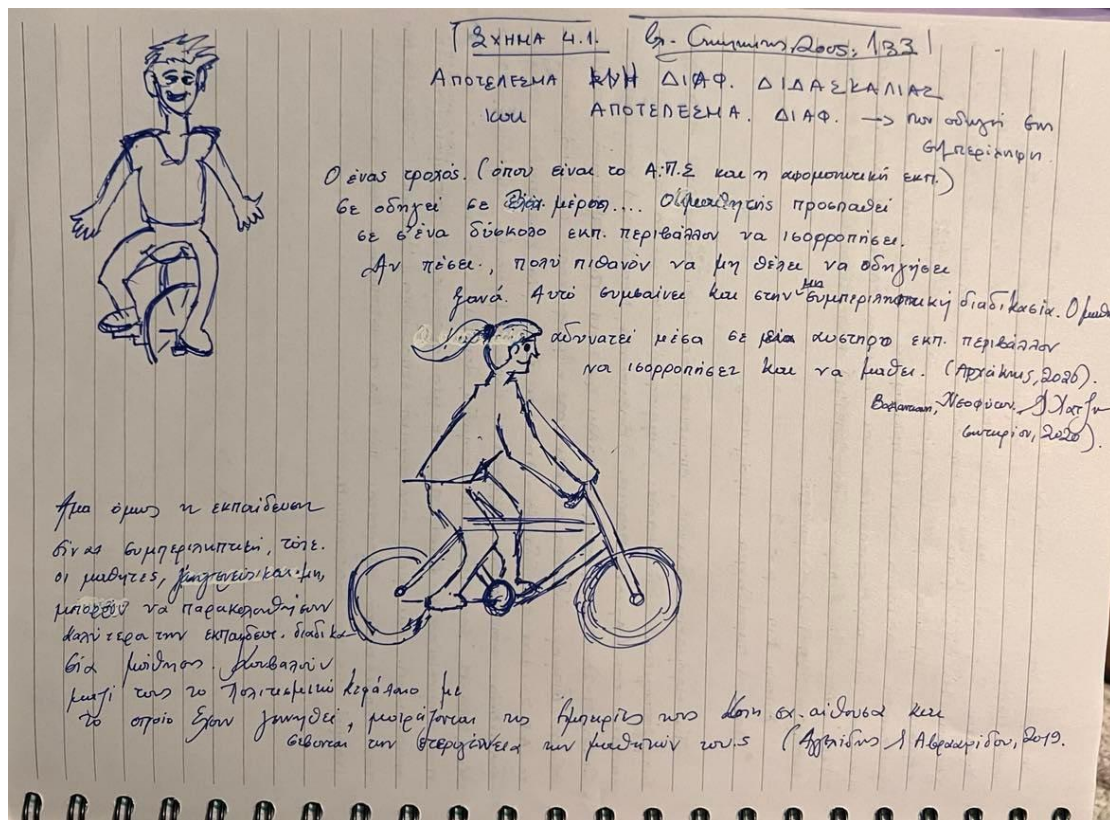 ΣΧΗΜΑ 4.1. βλ. 2005, 133
ΑΠΟΤΕΛΕΣΜΑ ΜΗ ΔΙΑΦ. ΔΙΔΑΣΚΑΛΙΑΣ
και ΑΠΟΤΕΛΕΣΜΑ. ΔΙΑΦ. → που οδηγεί στη
συμπερίληψη.
Ο ένας τροχός. (όπου είναι το Α.Π.Σ και η αφομοιωτική εκπ.)
σε οδηγεί σε μέρος.... Ο μαθητής προσπαθεί
σε σ'ένα δύσκολο εκπ. περιβάλλον να ισορροπήσει.
Αν πέσει., πολύ πιθανόν να μη θέλει να οδηγήσει
ξανά. Αυτό συμβαίνει και στην μη συμπεριληπτική διαδικασία. Ο μαθ
αδυνατεί μέσα σε αυστηρό εκπ. περιβάλλον
να ισορροπήσει και να μάθει. (2020).
Νεοφύτου, & Χατζη
σωτηρίου, 2020).
Άμα όμως η εκπαίδευση
είναι συμπεριληπτική, τότε.
οι μαθητές, και μη,
μπορούν να παρακολουθήσουν
καλύτερα την εκπαιδευτ. διαδικα
σία μάθησης. Κουβαλούν
μαζί τους το πολιτισμικό κεφάλαιο με
το οποίο έχουν γεννηθεί, μοιράζονται τις εμπειρίες τους στη σχ. αίθουσα και
σέβονται την ετερογένεια των μαθητών τους (Αγγελίδης & Αβρααμίδου, 2019.